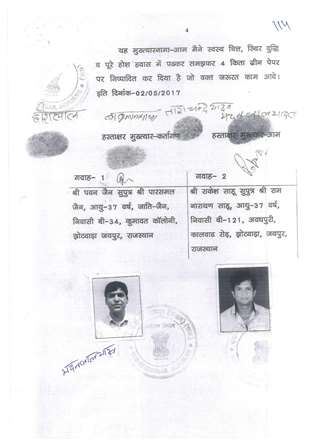 114
4
यह मुख्त्यारनामा-आम मैंने स्वस्थ चित्त, स्थिर बुद्धि
व पूरे होश हवास में पढकर समझकर 4 किता ग्रीन पेपर
पर निष्पादित कर दिया है जो वक्त जरूरत काम आवे।
इति दिनांक-02/05/2017
हस्ताक्षर मुख्त्यार-कर्तागण हस्ताक्षर मुख्त्यार-आम
गवाह- 1 गवाह- 2
श्री पवन जैन सुपुत्र श्री पारसमल
जैन, आयु-37 वर्ष, जाति-जैन,
निवासी बी-34, कुमावत कॉलोनी,
झोटवाड़ा जयपुर, राजस्थान
श्री राकेश साहू सुपुत्र श्री राम
नारायण साहू, आयु-37 वर्ष,
निवासी बी-121, अवधपुरी,
कालवाड रोड़, झोटवाड़ा, जयपुर,
राजस्थान